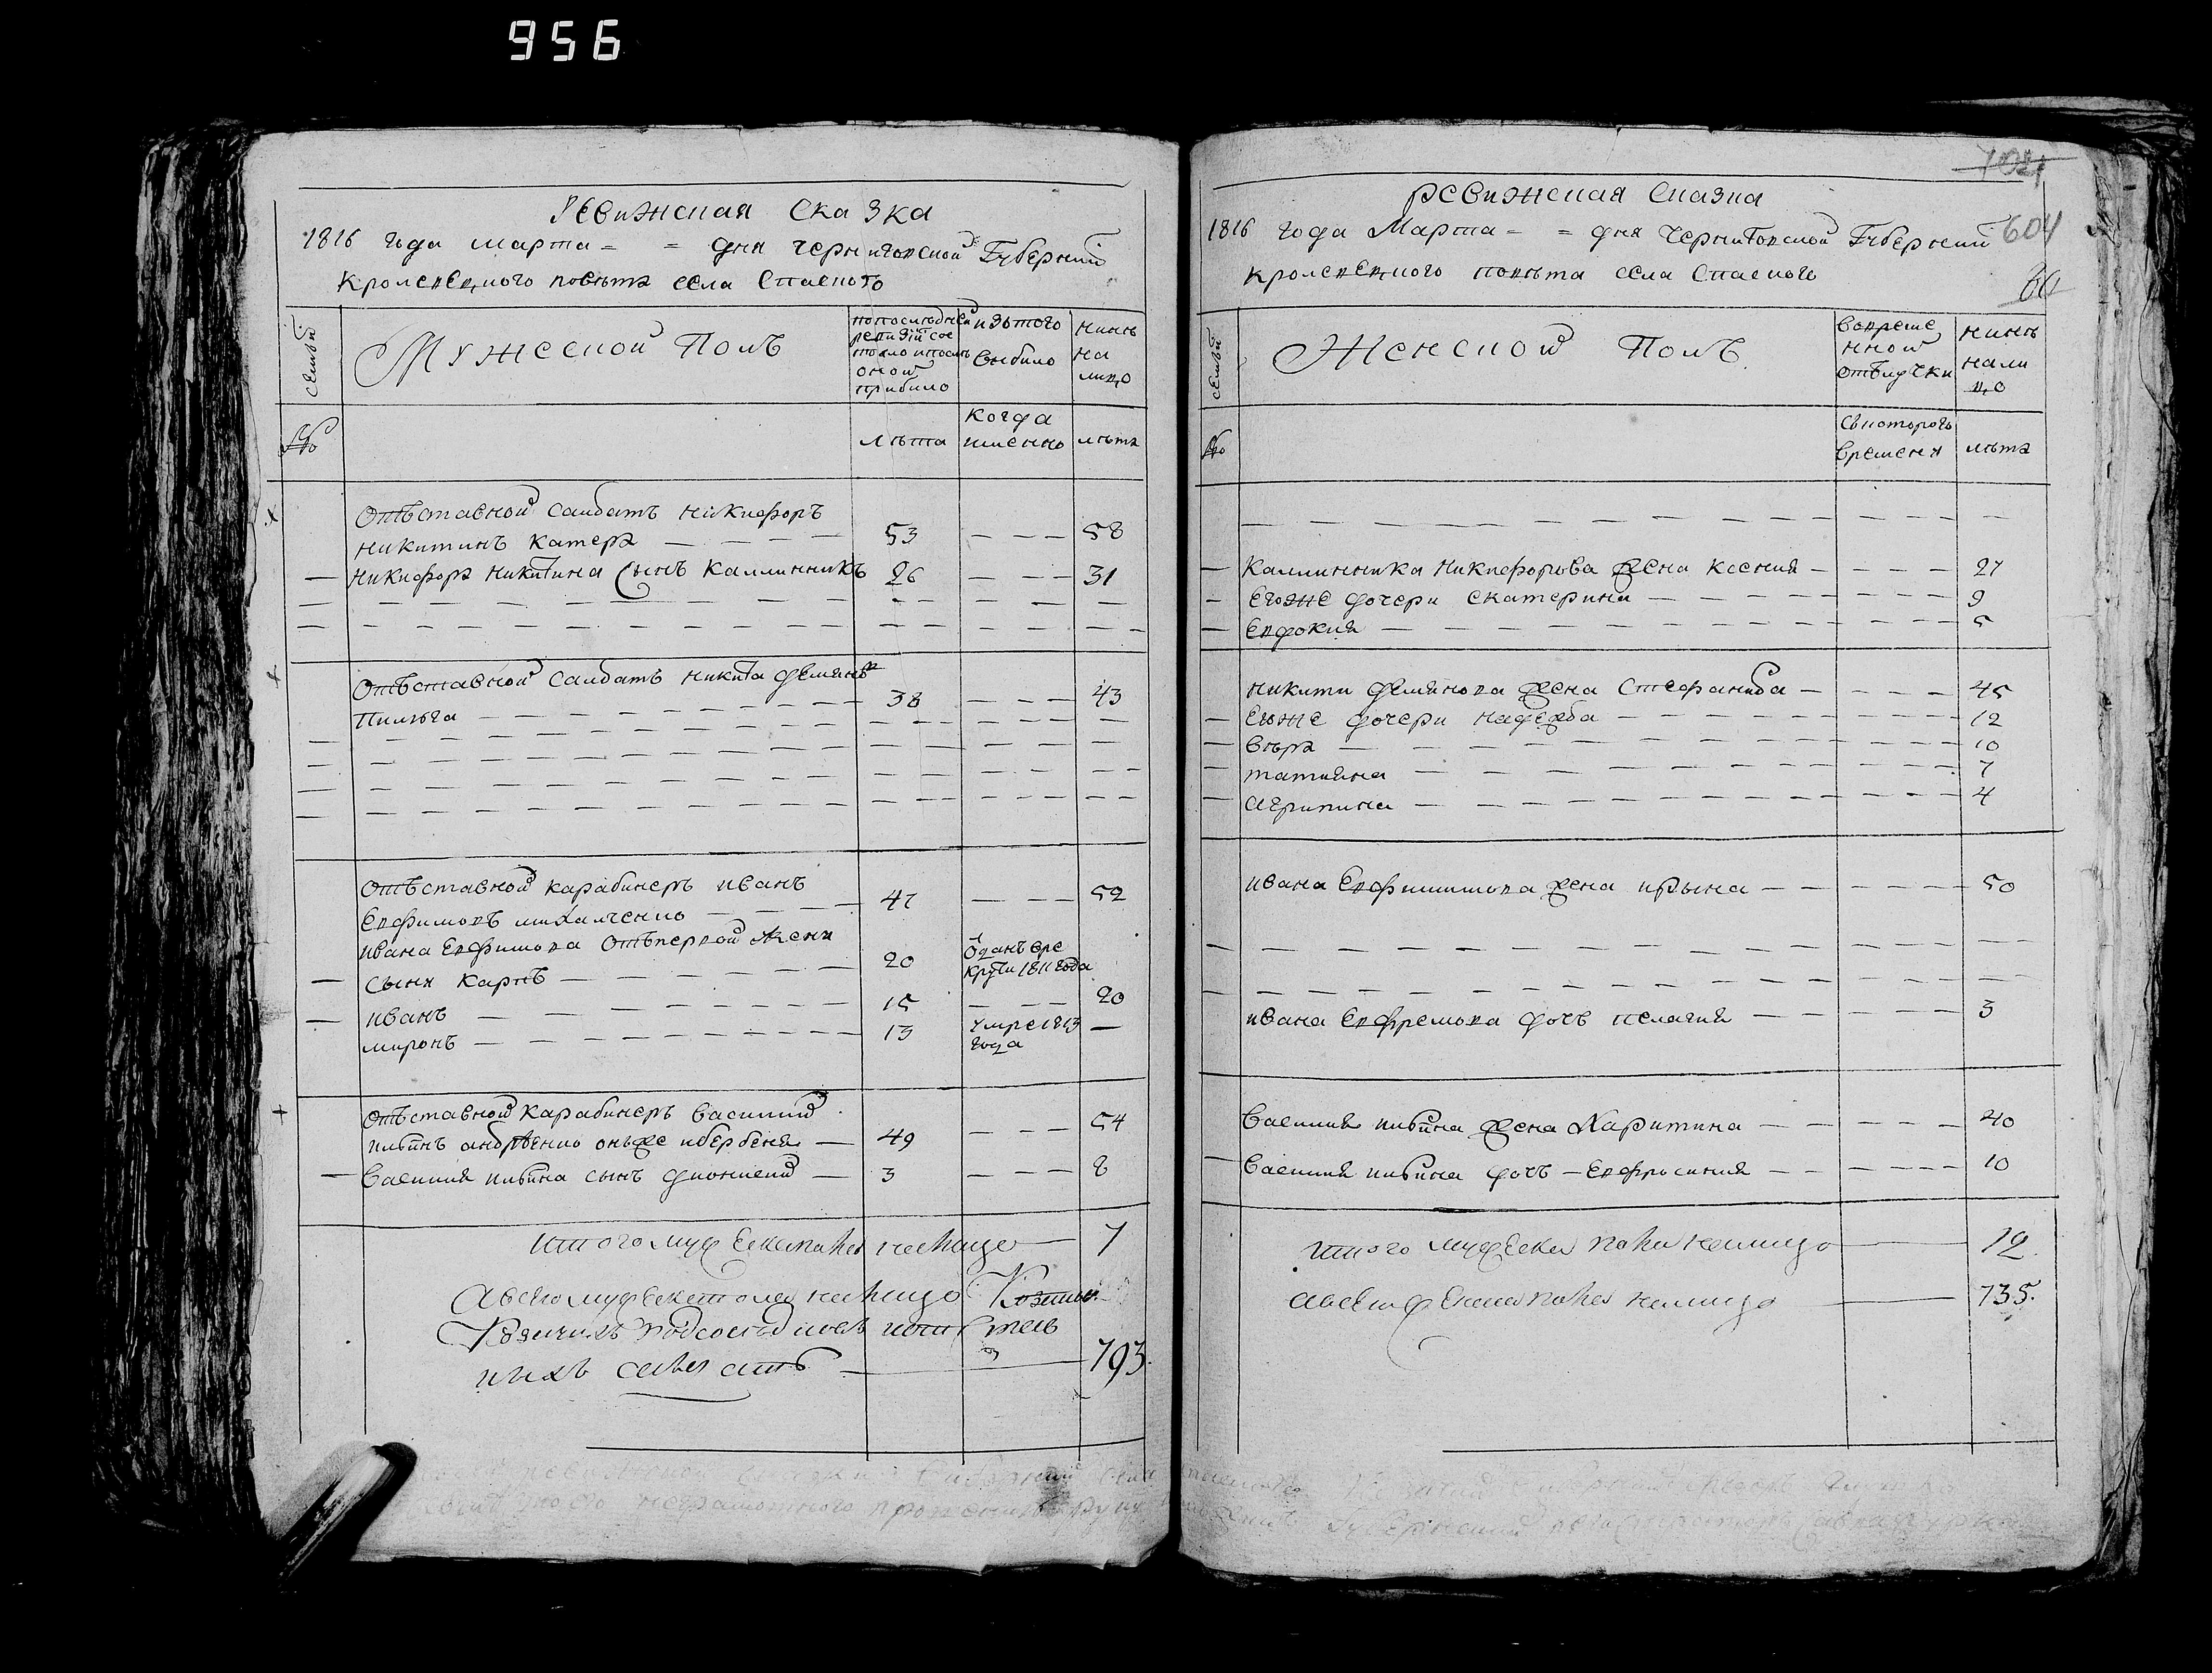 956
Ревижская Сказка
1816 года марта = = дня Черниговской Губернии
Кролевецкого повѣта села Спаского
семьи
Мужеской Полъ
попоследней ревизіи состояло ипослѣ оной прибило
изътого выбило
нинѣ на лицо
№
лѣта
когда имянно
лѣта
Отъставной Салдатъ Никифоръ
Никитинъ Катера — — — — 53 — — — 58
— Никифора Никитина Сынъ Каллинникъ 26 — — — 31
Отъставной Салдатъ Никита Демяновъ
— — — — 38 — — — 43
Отъставной карабинеръ иванъ
Евфимовъ михалченко — — — 47 — — — 52
ивана Евфимова Отъпервой Жени
— сыни Карпъ — — — 20 Одан в ре крути 1811 года
— иванъ — — — 15 — — — 20
миронъ — — — 13 умре 1813 года —
Отъставной карабинеръ Василий
— 49 — — — 54
— Василия ильина сынъ Дионисий — 3 — — — 8
Итого мужеска пола налицо — 7
А всего мужеска пола налицо
— 793.
704
Ревижская Сказка
1816 года Марта = = дня Черниговской Губернии 604
Кролевецкого повѣта села Спаского
семьи
Женской Полъ
вовремѣнной отълучки
нинѣ налицо
№
съкоторого времени
лѣта
— Каллинника Никифорова жена Ксения — — — — 27
— Егоже дочери Екатерина — — — 9
— Евдокия — — — 5
Никити Демянова жена Стефанида — — — 45
— Егоже дочери Надежда — — — 12
— Вѣра — — — 10
— Татияна — — — 7
— Агрипина — — — 4
ивана Евфимиова жена ирына — — — 50
ивана Евфремова дочь пелагия — — — 3
Василия ильина жена Харитина — — — 40
— Василия ильина дочь — Евфросиния — — — 10
Итого мужеска пола налицо — 12.
А всего женска пола налицо — 735.